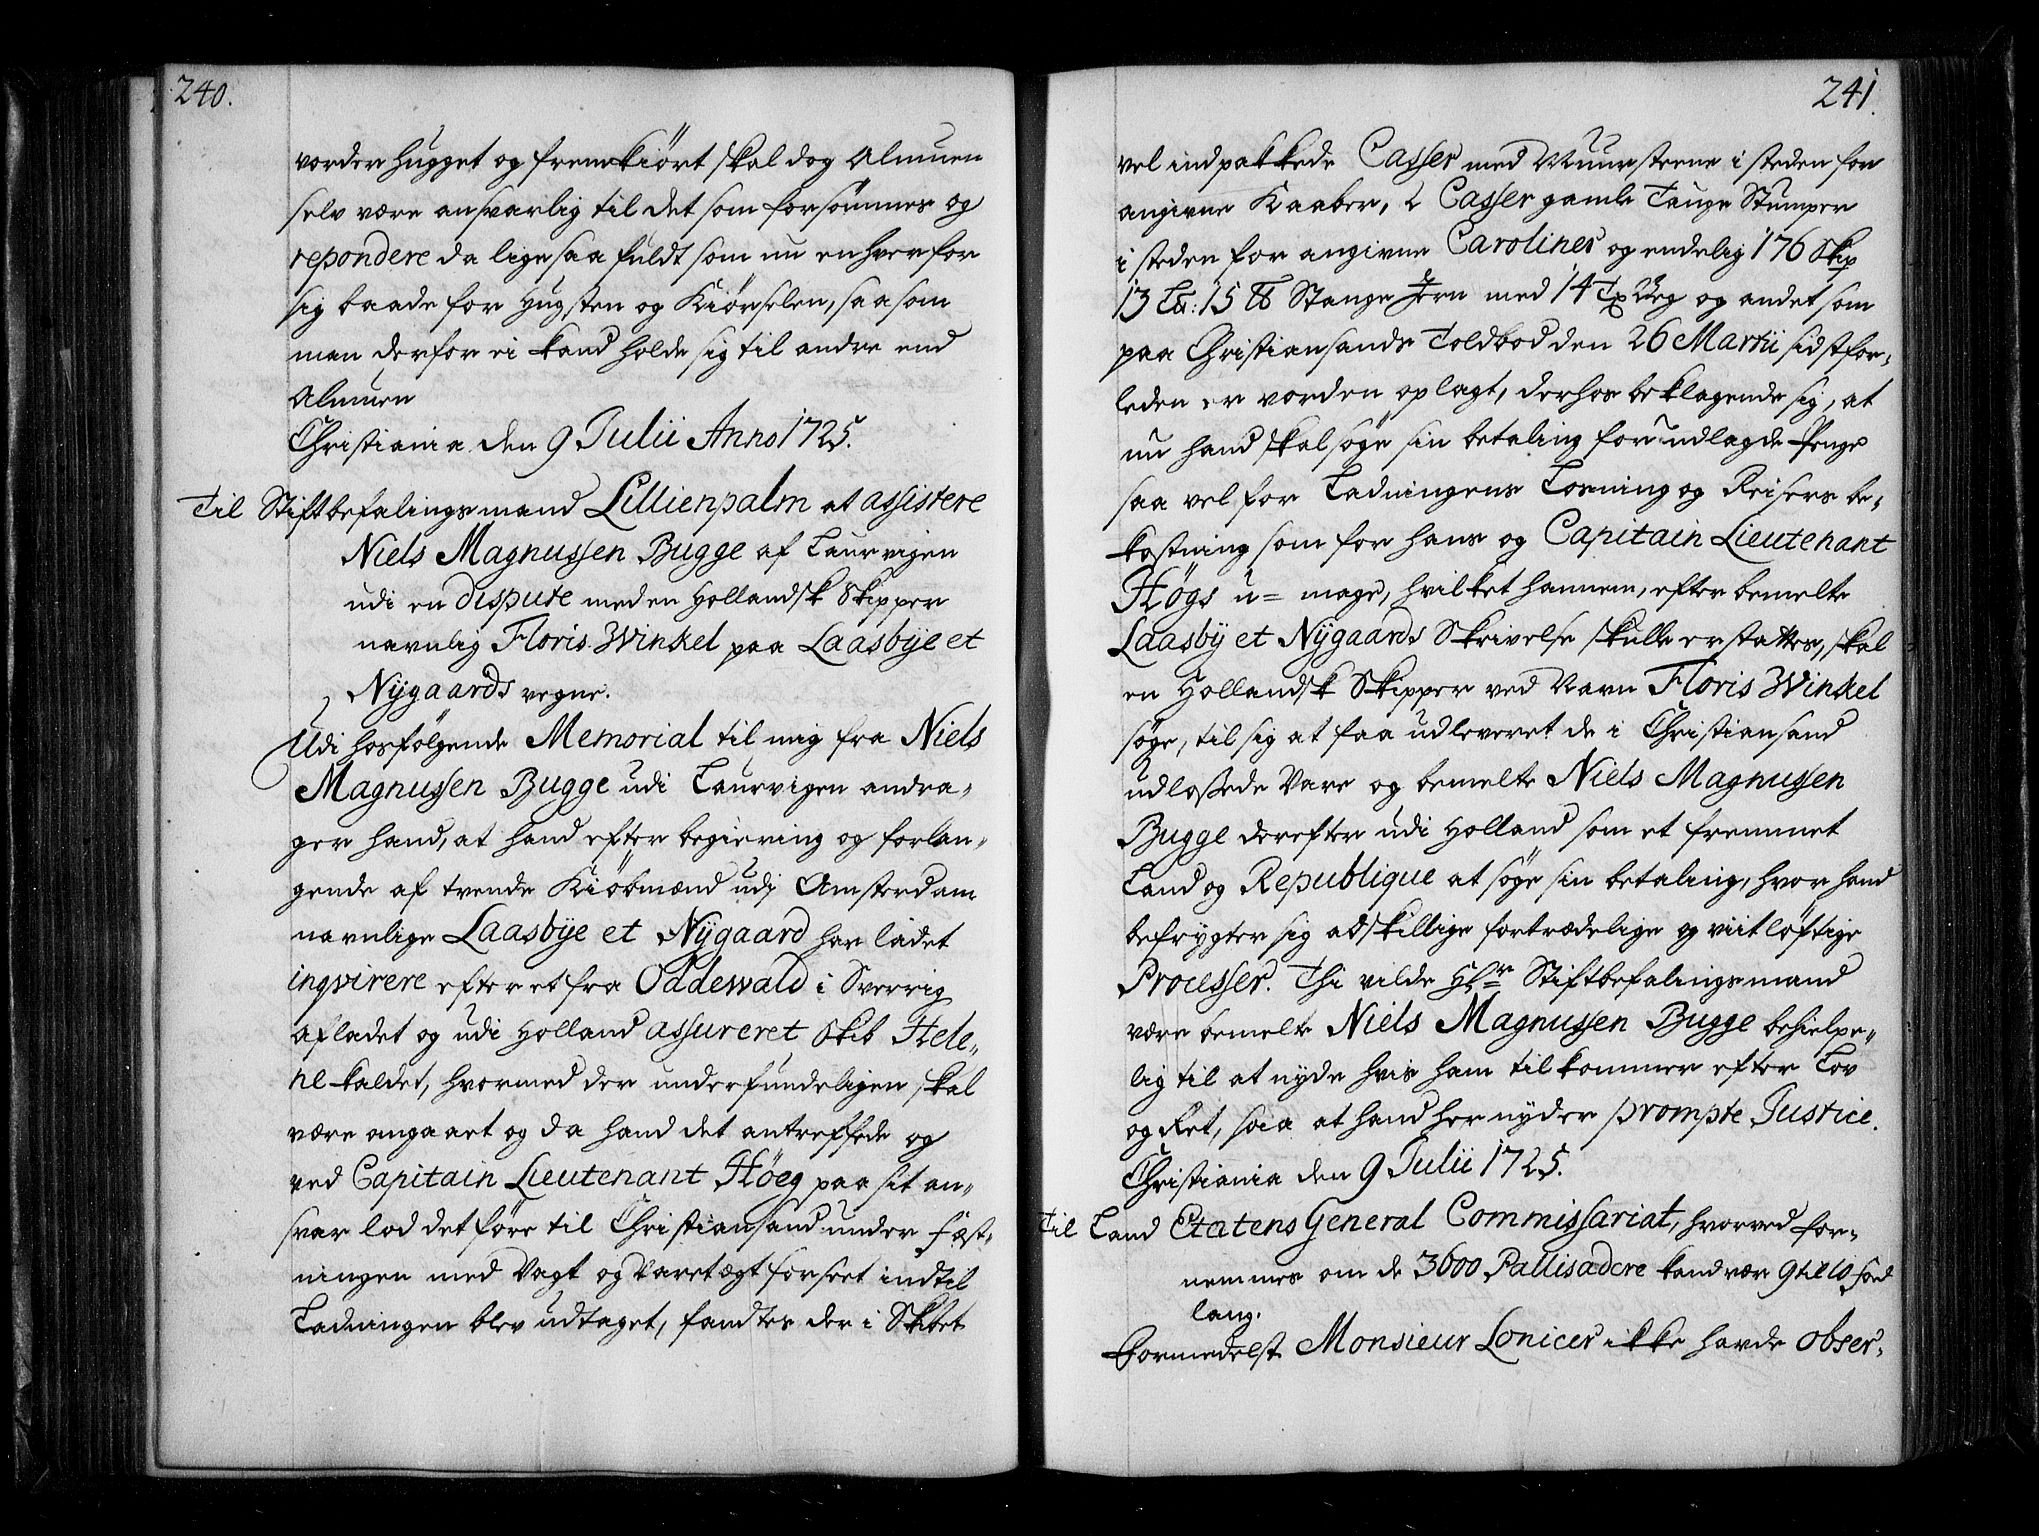 240.
vorder hugget og fremkiört skal dog Almuen
selv være ansvarlig til det som forsömmes og
repondere da ligesaa fuldt som nu enhver for
sig baade for Hugsten og Kiörselen, saasom
man derfor ei kand holde sig til andre end
Almuen
Christiania den 9 Julii Anno 1725.
Til Stiftbefalingsmand Lillienpalm at assistere
Niels Magnussen Bugge af Laurvigen
udi en dispute med en Hollandsk Skipper
navnlig Floris Winkel paa Laasbÿe et
Nÿgaards vegne.
Udi hosfölgende Memorial til mig fra Niels
Magnussen Bugge udi Laurvigen andra-
ger hand, at hand efter begiering og forlan-
gende af tvende Kiöbmænd udj Amsterdam
navnlige Laasbÿe et Nÿgaard har ladet
inqvirere efter et fra Oddewald i Sverrig
afladet og udi Holland assureret Skib Hele-
ne kaldet, hvormed der underfundeligen skal
være omgaaet og da hand det antreffede og
ved Capitain Lieutenant Höeg paa sit an-
svar lod det före til Christiansand under Fæst-
ningen med Vagt og Varetægt forseet indtil
Ladningen blev udtaget, fandtes der i Skibet
241
vel indpakkede Casser med Muursteene i steden for
angivne Kaaber, 2 Casser gamle Touge Stumper
i steden for angivne Caroliner og endelig 176 Skip
13 Lb: 15 lb Stange Jern med 14 Beg og andet som
paa Christiansands Toldbod den 26 Martii sidstfor-
leden er vorden oplagt, derhos beklagende sig, at
nu hand skal söge sin betaling for udlagde Penge
saa vel for Ladningens Losning og Reisers be-
kostning som for hans og Capitain Lieutenant
Högs u= mage, hvilket hannem, efter bemelte
Laasbÿ et Nÿgaards Skrivelse skulle erstattes, skal
en Hollandsk Skipper ved Navn Floris Winkel
söge, til sig at faa udleveret de i Christiansand
udlossede Vare og bemelte Niels Magnussen
Bugge derefter udi Holland som et fremmet
Land og Republique at söge sin betaling, hvor hand
befrygter sig adskillige fortrædelige og viitlöftige
Processer. Thi vilde Hr Stiftbefalingsmand
være bemelte Niels Magnussen Bugge behielpe-
lig til at nyde hvis ham tilkommer efter Lov
og Ret, saa at hand her nyder prompte Justice.
Christiania den 9 Julii 1725.
Til Land Etatens General Commissariat, hvorved for-
nemmes om de 3600 Pallisadere kand vær 9 til 10 Fod
lang.
Formedelst Monsieur Lonicer ikke havde obser-